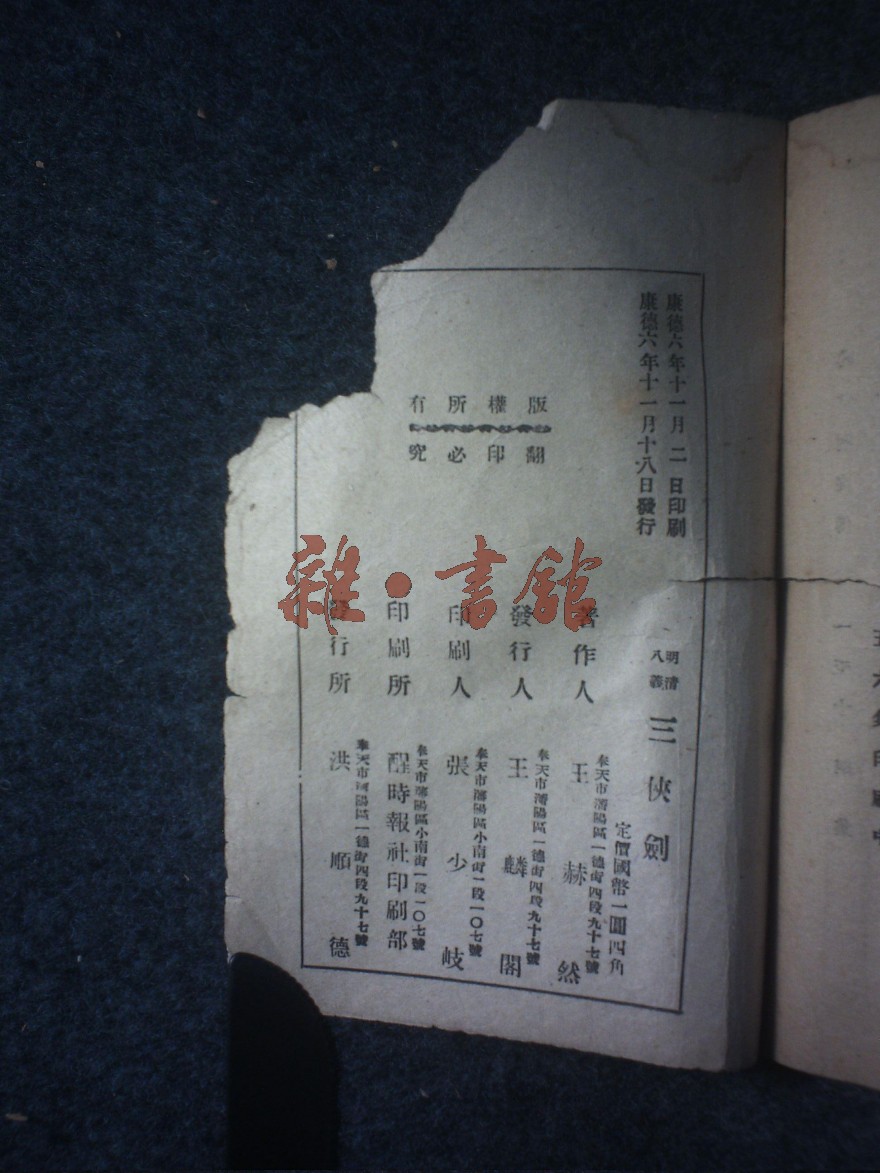 康德六年十一月二日印刷
康德六年十一月十八日發行
版權所有
翻印必究
明清
八義
三俠劍
定價國幣一圓四角
著作人
奉天市瀋陽區一德街四段九十七號
王赫然
發行人
奉天市瀋陽區一德街四段九十七號
王麟閣
印刷人
奉天市瀋陽區小南街一段一〇七號
張少岐
印刷所
奉天市瀋陽區小南街一段一〇七號
醒時報社印刷部
發行所
奉天市瀋陽區一德街四段九十七號
洪順德
雜·書館